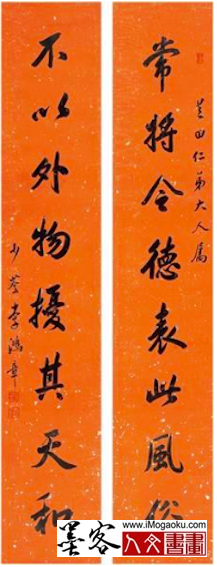 常將令德表此風俗
仁弟大人屬
不以外物擾其天和
少荃李鴻章
www.iMogaoku.com
墨客
人文書畫